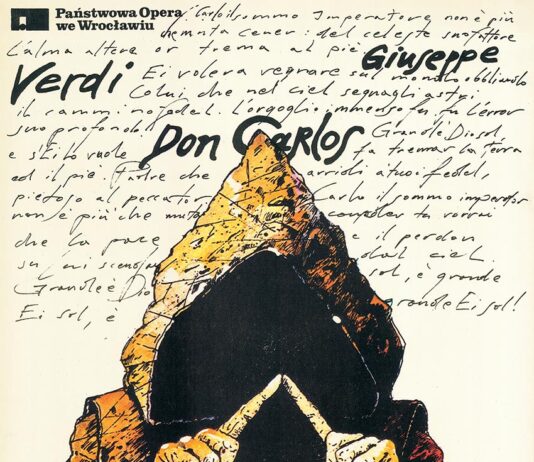 Państwowa Opera
we Wrocławiu
Carlo il sommo Imperatore non è più
che muta cener: del celeste suo fattore
L'alma altera or trema al piè
Giuseppe
Verdi
Ei voleva regnare sul mondo
Colui, che nel ciel segnagli astri
il cammino fedel. L'orgoglio immenso fu, fu l'error
suo profondo
Don Carlos
Grand è Dio sol
e s'Ei lo vuole fa tremar la terra
ed il piè. Padre che arridi a tuoi fedel,
pietoso al peccator Carlo il sommo imperator
non è più che muta conceder tu vorrai
che la pace e il perdon
su lui scendan dal ciel.
Grande è Dio sol, è grande
Ei sol, è grande Ei sol!